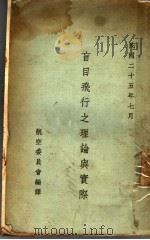 民國二十五年七月
盲目飛行之理論與實際
航空委員會編譯